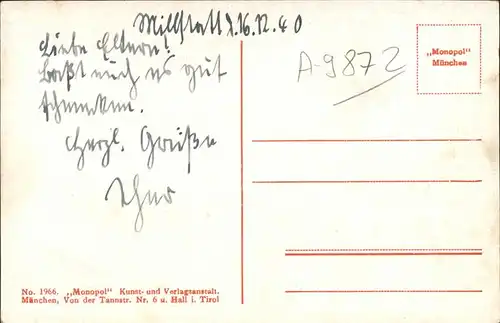 Millstatt d. 16.12.40
Liebe Eltern!
Laßt euch es gut
schmecken.
Herzl. Grüße
A-9872
„Monopol"
München
No. 1966. „Monopol" Kunst- und Verlagsanstalt.
München, Von der Tannstr. Nr. 6 u. Hall i. Tirol